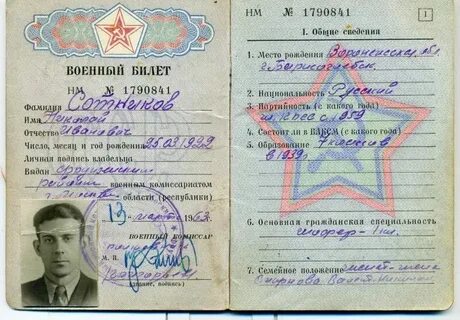 ВОЕННЫЙ БИЛЕТ
НМ № 1790841
Фамилия Сотников
Имя Николай
Отчество Иванович
Число, месяц и год рождения
Личная подпись владельца
Выдан
районным военным комиссариатом
г. Москвы области (республики)
13 марта 1963
ВОЕННЫЙ КОМИССАР
М. П.
(звание, подпись)
НМ № 1790841
1
I. Общие сведения
1. Место рождения Воронежская обл
г. Борисоглебск
2. Национальность Русский
3. Партийность (с какого года)
КПСС с 1959
4. Состоит ли в ВЛКСМ (с какого года)
5. Образование 7 классов
в 1939
6. Основная гражданская специальность
шофер
7. Семейное положение